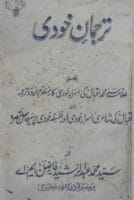 ترجمان خودی
یعنی
علامہ محمد اقبال کی اسرار خودی کا منظوم اردو ترجمہ
اور
اقبال کی شاعری اسرار خودی اور فلسفہ خودی پر سیر حاصل تبصرہ
از
سید محمد عبدالرشید فاضل ایم اے